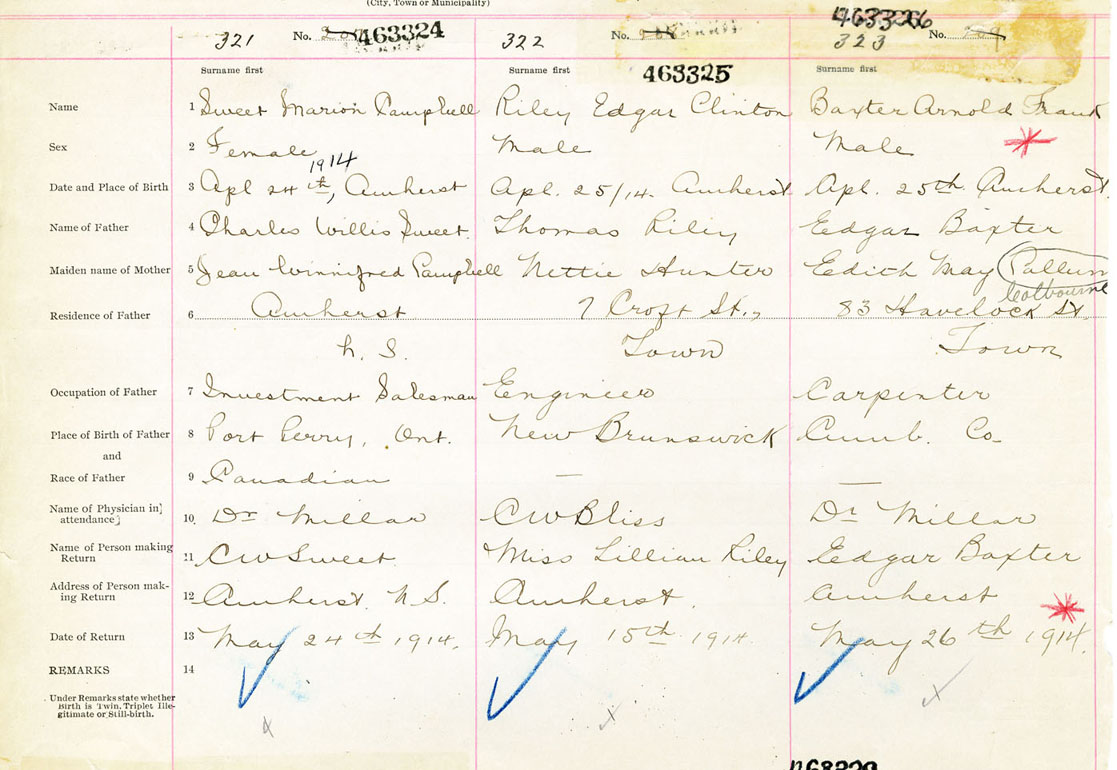 (City, Town or Municipality)
463326
321 No. 463324 322 No. 323 No.
463325
Surname first Surname first Surname first
Name 1 Sweet Marion Campbell Riley Edgar Clinton Baxter Arnold Frank
Sex 2 Female Male Male
1914
Date and Place of Birth 3 Apl 24th, Amherst Apl. 25/14. Amherst Apl. 25th Amherst.
Name of Father 4 Charles Willis Sweet. Thomas Riley Edgar Baxter
Maiden name of Mother 5 Jean Winnifred Campbell Nettie Hunter Edith May
Colbourne
Residence of Father 6 Amherst 7 Croft St., 83 Havelock St.
N. S. Town Town
Occupation of Father 7 Investment Salesman Engineer Carpenter
Place of Birth of Father 8 Port Perry, Ont. New Brunswick Cumb. Co
and
Race of Father 9 Canadian — —
Name of Physician in 10. Dr Millar CW Bliss Dr Millar
attendance
Name of Person making 11 CW Sweet Miss Lillian Riley Edgar Baxter
Return
Address of Person mak- 12 Amherst, N.S. Amherst. Amherst
ing Return
Date of Return 13 May 24th 1914. May 15th 1914. May 26th 1914.
REMARKS 14
Under Remarks state whether
Birth is Twin, Triplet Ille-
gitimate or Still-birth.